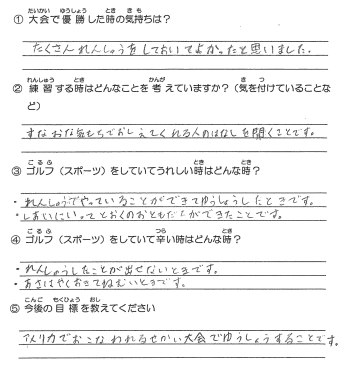 ① 大会で優勝した時の気持ちは？
たくさんれんしゅうをしておいてよかったと思いました。
② 練習する時はどんなことを考えていますか？（気を付けていることな
ど）
すなおな気もちでおしえてくれる人のはなしを聞くことです。
③ ゴルフ（スポーツ）をしていてうれしい時はどんな時？
・れんしゅうでやっていることができてゆうしょうしたときです。
・しあいにいってとおくのおともだちができたことです。
④ ゴルフ（スポーツ）をしていて辛い時はどんな時？
・れんしゅうしたことが出せないときです。
・あさはやくおきてねむいときです。
⑤ 今後の目標を教えてください
アメリカでおこなわれるせかい大会でゆうしょうすることです。